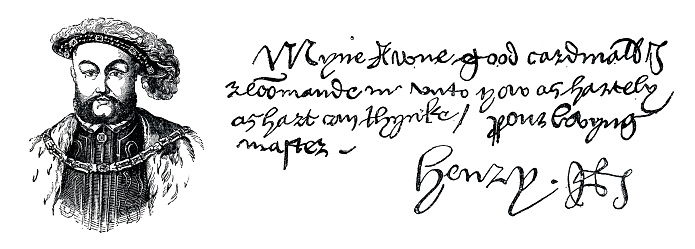 Myne Awne good cardinall I
recōmande me unto yow as hartely
as hart can thynke / your lovyng
master
Henry.